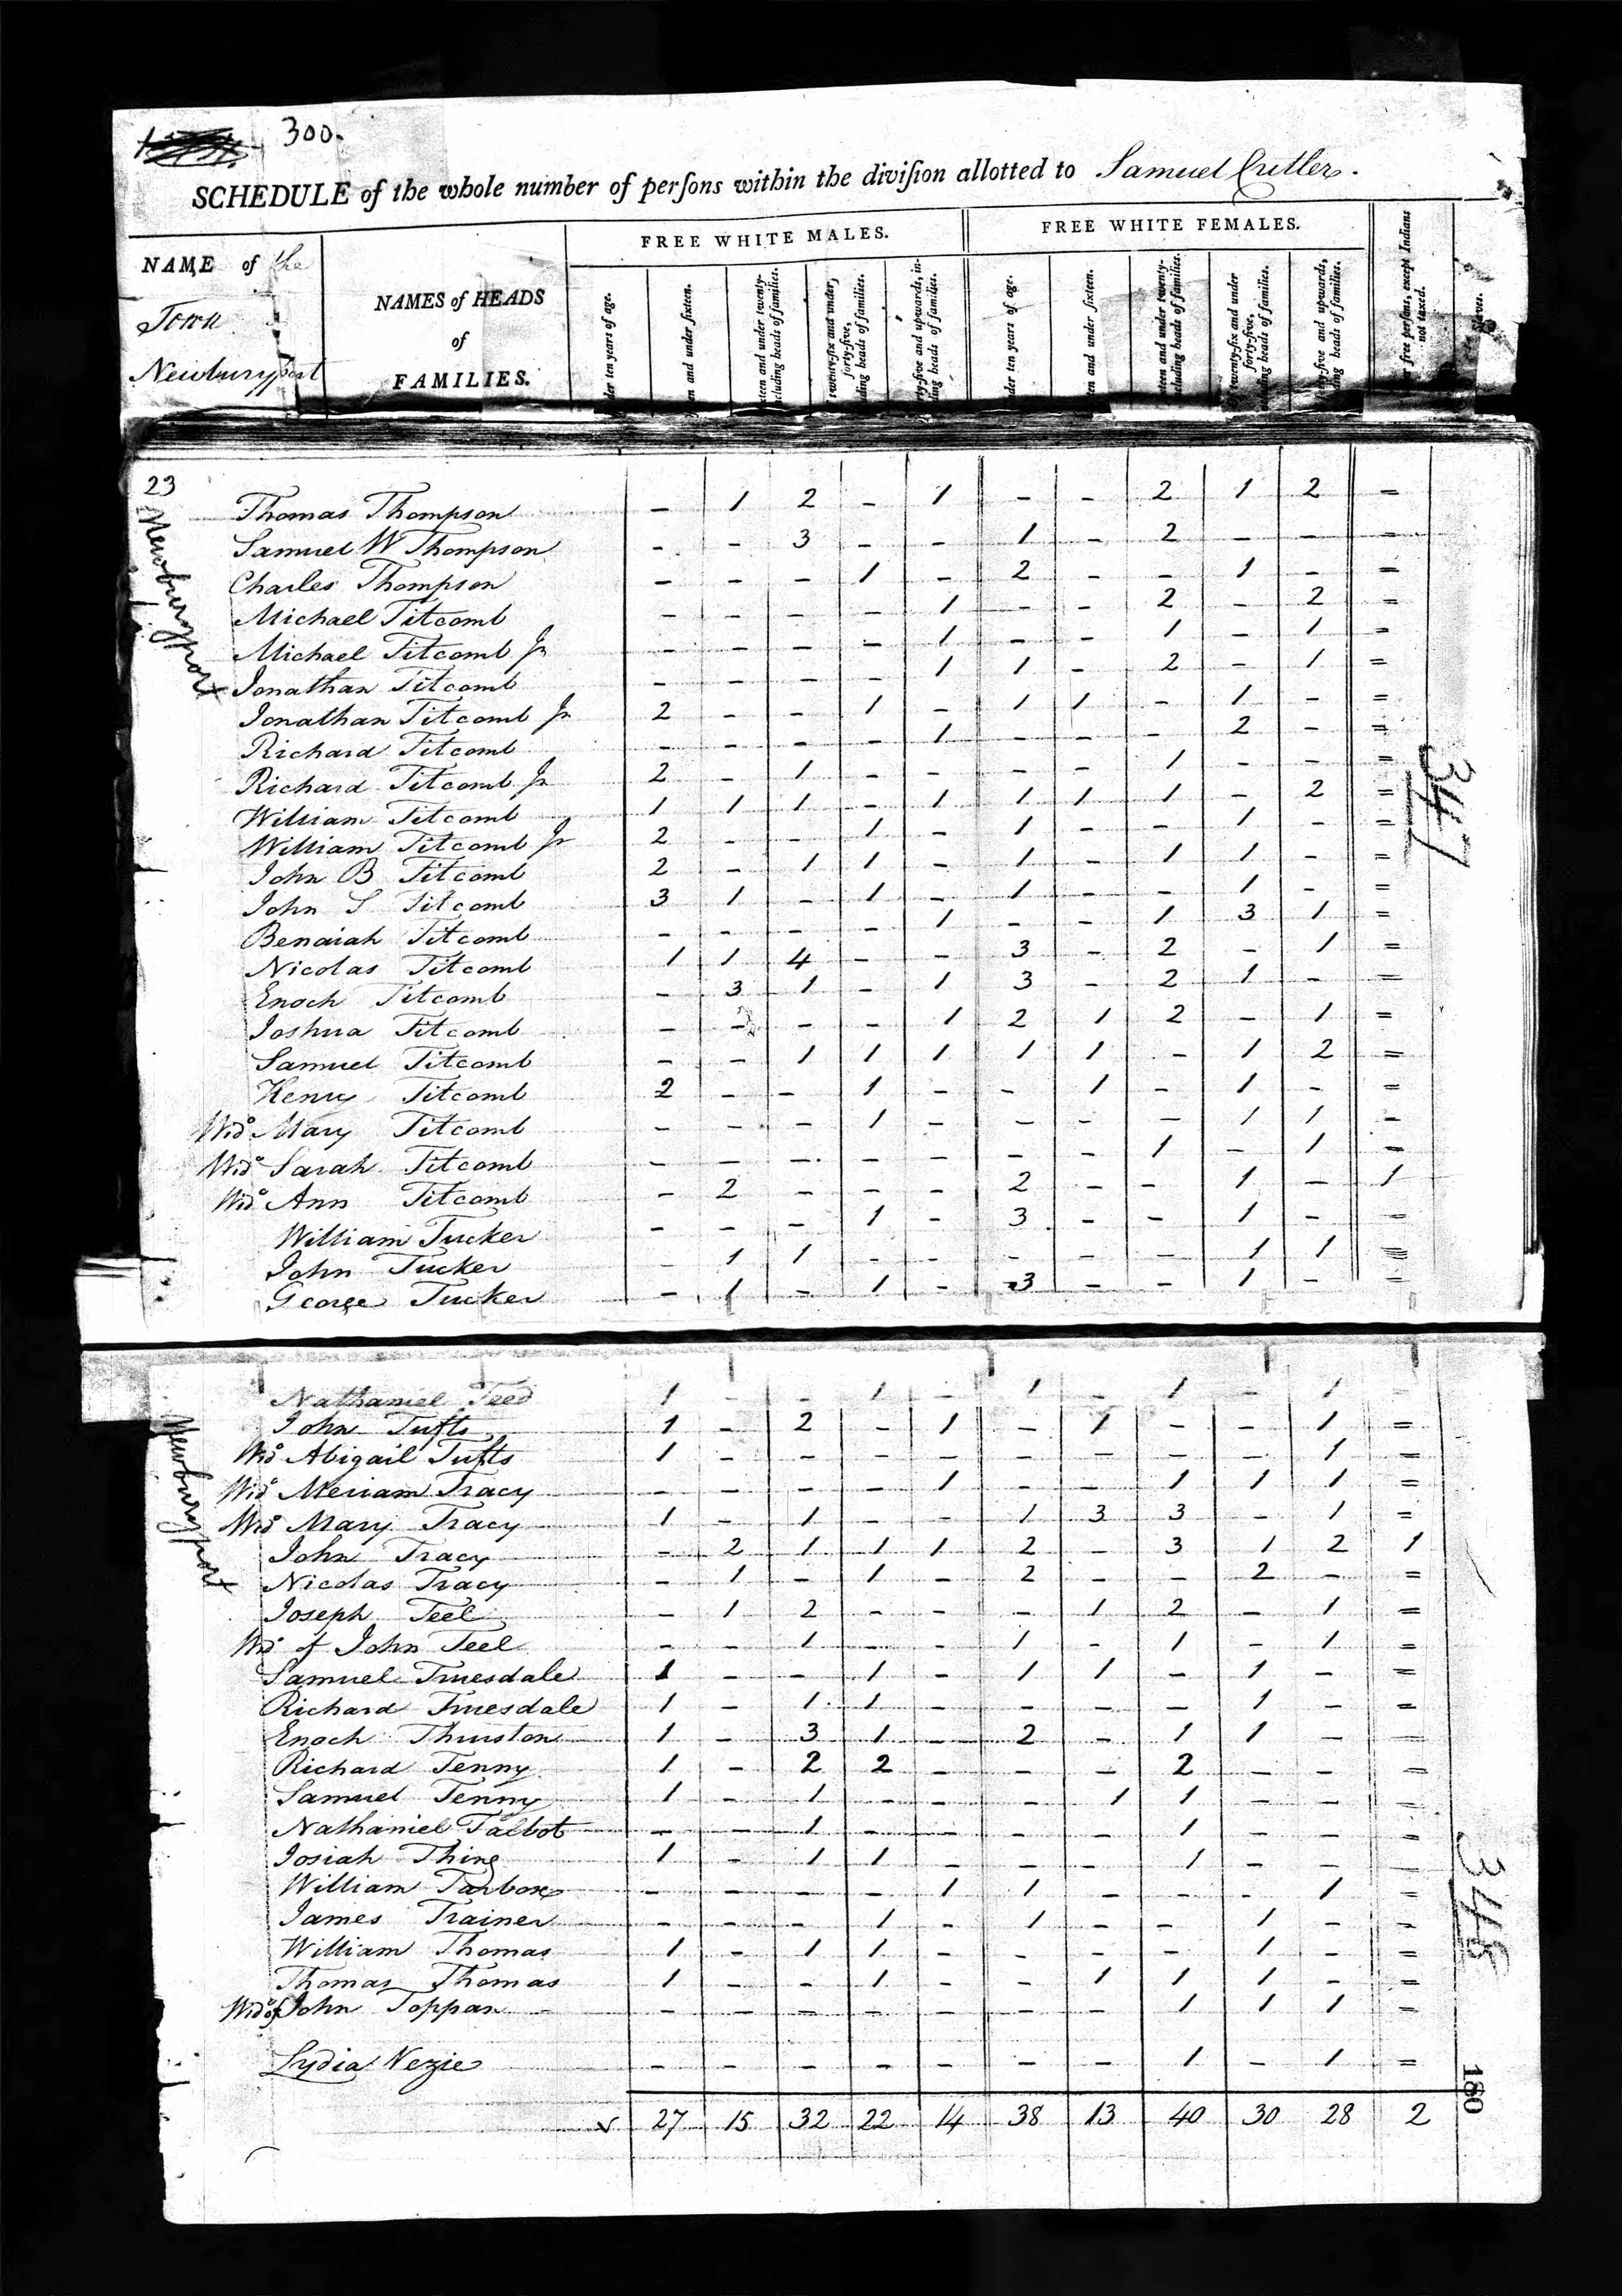 300.
SCHEDULE of the whole number of perſons within the diviſion allotted to Samuel Cutler.
NAME of the
Town
Newburyport
NAMES of HEADS
of
FAMILIES.
FREE WHITE MALES.
FREE WHITE FEMALES.
der ten years of age.
en and under ſixteen.
xteen and under twenty-
cluding heads of families.
twenty-ſix and under
forty-five,
ding heads of families.
rty-five and upwards, in-
ing heads of families.
der ten years of age.
en and under ſixteen.
xteen and under twenty-
cluding heads of families.
twenty-ſix and under
forty-five,
heads of families.
ty-five and upwards,
ing heads of families.
free perſons, except Indians
not taxed.
Slaves.
23
Newburyport
Thomas Thompson - 1 2 - 1 - - 2 1 2 =
Samuel W Thompson - - 3 - - 1 - 2 - - =
Charles Thompson - - - 1 - 2 - - 1 - =
Michael Titcomb - - - - 1 - - 2 - 2 =
Michael Titcomb Jr - - - - 1 - - 1 - 1 =
Jonathan Titcomb - - - - 1 1 - 2 - 1 =
Jonathan Titcomb Jr 2 - - 1 - 1 1 - 1 - =
Richard Titcomb - - - - 1 - - - 2 - =
Richard Titcomb Jr 2 - 1 - - - - 1 - - =
William Titcomb 1 1 1 - 1 1 1 1 - 2 =
William Titcomb Jr 2 - - 1 - 1 - - 1 - =
John B Titcomb 2 - 1 1 - 1 - 1 1 - =
John S Titcomb 3 1 - 1 - 1 - - 1 - =
Benaiah Titcomb - - - - 1 - - 1 3 1 =
Nicolas Titcomb 1 1 4 - - 3 - 2 - 1 =
Enoch Titcomb - 3 1 - 1 3 - 2 1 - =
Joshua Titcomb - - - - 1 2 1 2 - 1 =
Samuel Titcomb - - 1 1 1 1 1 - 1 2 =
Henry Titcomb 2 - - 1 - - 1 - 1 - =
Wido Mary Titcomb - - - 1 - - - - 1 1 -
Wido Sarah Titcomb - - - - - - - 1 - 1 =
Wido Ann Titcomb - 2 - - - 2 - - 1 - 1
William Tucker - - - 1 - 3 - - 1 - =
John Tucker - 1 1 - - - - - 1 1 =
George Tucker - 1 - 1 - 3 - - 1 - =
347
Newburyport
Nathaniel Teed 1 - - 1 - 1 - 1 - 1 =
John Tufts 1 - 2 - 1 - 1 - - 1 =
Wido Abigail Tufts 1 - - - - - - - - 1 =
Wido Meriam Tracy - - - - 1 - - 1 1 1 =
Wido Mary Tracy 1 - 1 - - 1 3 3 - 1 =
John Tracy - 2 1 1 1 2 - 3 1 2 1
Nicolas Tracy - 1 - 1 - 2 - - 2 - =
Joseph Teel - 1 2 - - - 1 2 - 1 =
Wido of John Teel - - 1 - - 1 - 1 - 1 =
Samuel Truesdale 1 - - 1 - 1 1 - 1 - =
Richard Truesdale 1 - 1 1 - - - - 1 - =
Enoch Thurston 1 - 3 1 - 2 - 1 1 - =
Richard Tenny 1 - 2 2 - - - 2 - - =
Samuel Tenny 1 - 1 - - - 1 1 - - =
Nathaniel Talbot - - 1 - - - - 1 - - =
Josiah Thing 1 - 1 1 - - - 1 - - =
William Tarbox - - - - 1 1 - - - 1 =
James Trainer - - - 1 - 1 - - 1 - =
William Thomas 1 - 1 1 - - - - 1 - =
Thomas Thomas 1 - - 1 - - 1 1 1 - =
Wido of John Toppan - - - - - - - 1 1 1 =
Lydia Nezie - - - - - - - 1 - 1 =
27 15 32 22 14 38 13 40 30 28 2
348
180